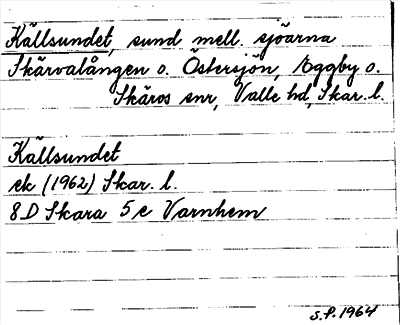 Källsundet, sund mell. sjöarna
Skärvalången o. Östersjön, Eggby o.
Skäros snr, Valle hd, Skar. l.
Källsundet
ek (1962) Skar. l.
8D Skara 5e Varnhem
S.P. 1964